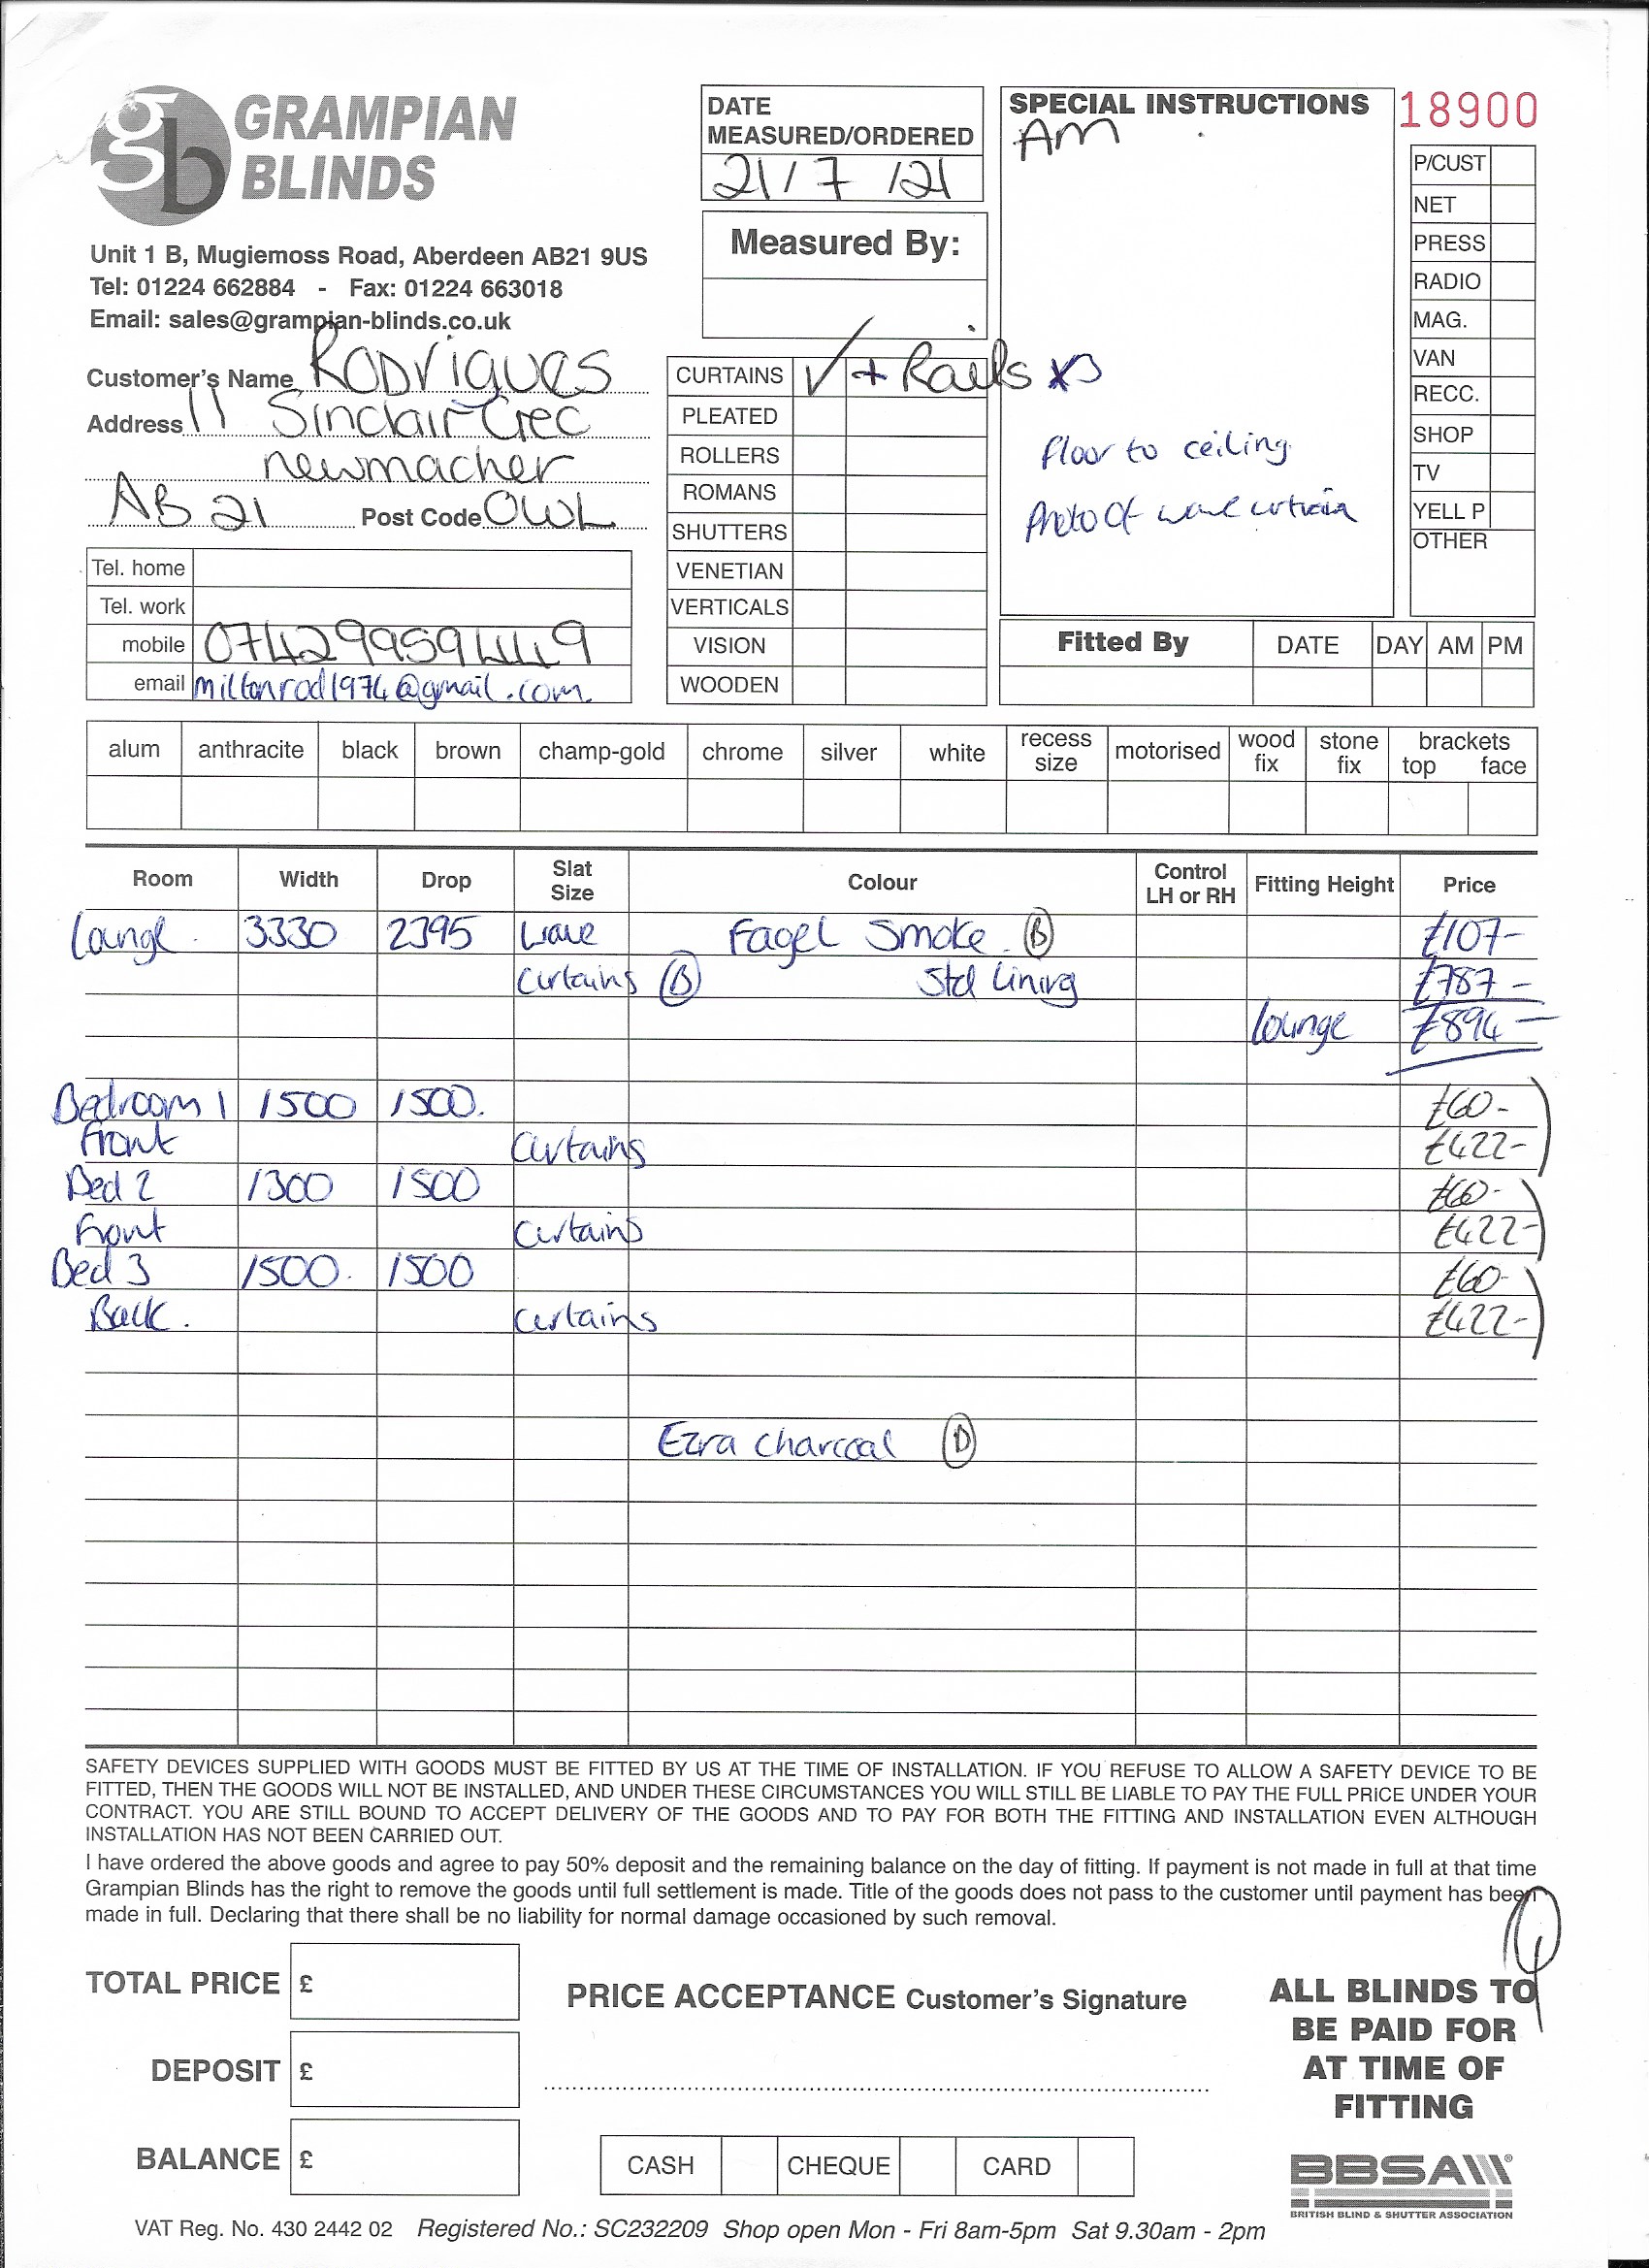 GRAMPIAN
BLINDS
gb
Unit 1 B, Mugiemoss Road, Aberdeen AB21 9US
Tel: 01224 662884 - Fax: 01224 663018
Email: sales@grampian-blinds.co.uk
Customer's Name Rodrigues
Address 11 Sinclair Crec
newmacher
AB 21 Post Code OWL
Tel. home
Tel. work
mobile 07429959449
email miltonrod1974@gmail.com.
DATE
MEASURED/ORDERED
21/7/21
Measured By:
CURTAINS ✓ + Rails x3
PLEATED
ROLLERS
ROMANS
SHUTTERS
VENETIAN
VERTICALS
VISION
WOODEN
SPECIAL INSTRUCTIONS
AM
floor to ceiling
Photo of wave curtain
18900
P/CUST
NET
PRESS
RADIO
MAG.
VAN
RECC.
SHOP
TV
YELL P
OTHER
Fitted By DATE DAY AM PM
alum anthracite black brown champ-gold chrome silver white recess size motorised wood fix stone fix brackets top face
Room Width Drop Slat Size Colour Control LH or RH Fitting Height Price
Lounge 3330 2395 Wave Fagel Smoke B £107-
Curtains B Std Lining £787-
Lounge £894-
Bedroom 1 1500 1500. £60-
Front Curtains £422-
Bed 2 1300 1500 £60-
Front Curtains £422-
Bed 3 1500. 1500 £60-
Back. Curtains £422-
Ezra Charcoal D
SAFETY DEVICES SUPPLIED WITH GOODS MUST BE FITTED BY US AT THE TIME OF INSTALLATION. IF YOU REFUSE TO ALLOW A SAFETY DEVICE TO BE
FITTED, THEN THE GOODS WILL NOT BE INSTALLED, AND UNDER THESE CIRCUMSTANCES YOU WILL STILL BE LIABLE TO PAY THE FULL PRICE UNDER YOUR
CONTRACT. YOU ARE STILL BOUND TO ACCEPT DELIVERY OF THE GOODS AND TO PAY FOR BOTH THE FITTING AND INSTALLATION EVEN ALTHOUGH
INSTALLATION HAS NOT BEEN CARRIED OUT.
I have ordered the above goods and agree to pay 50% deposit and the remaining balance on the day of fitting. If payment is not made in full at that time
Grampian Blinds has the right to remove the goods until full settlement is made. Title of the goods does not pass to the customer until payment has been
made in full. Declaring that there shall be no liability for normal damage occasioned by such removal.
TOTAL PRICE £
DEPOSIT £
BALANCE £
PRICE ACCEPTANCE Customer's Signature
CASH CHEQUE CARD
ALL BLINDS TO
BE PAID FOR
AT TIME OF
FITTING
BBSA
BRITISH BLIND & SHUTTER ASSOCIATION
VAT Reg. No. 430 2442 02 Registered No.: SC232209 Shop open Mon - Fri 8am-5pm Sat 9.30am - 2pm